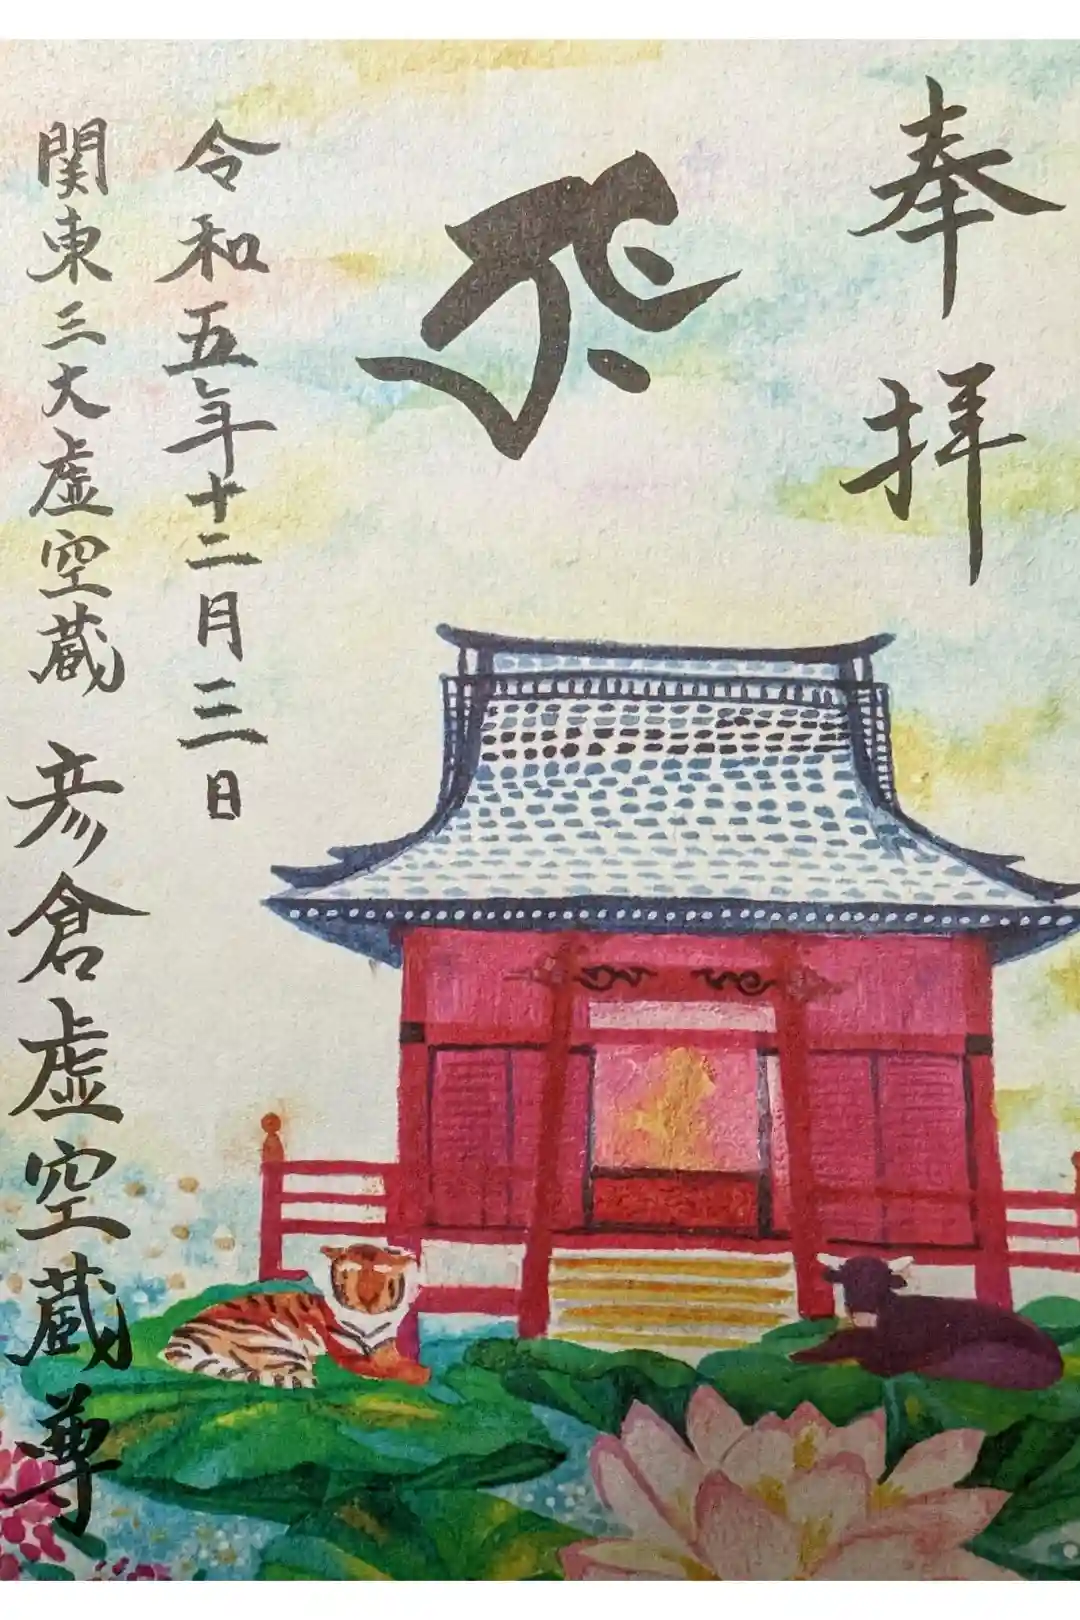 奉拝
令和五年十二月三日
関東三大虚空蔵 彦倉虚空蔵尊